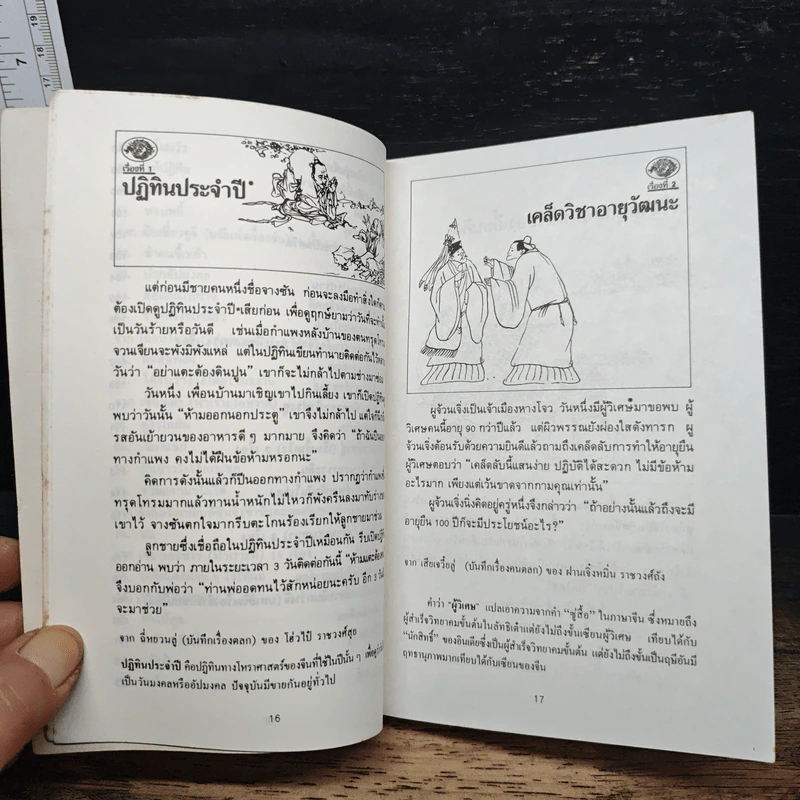 7
17 18 19
เรื่องที่ 1
ปฏิทินประจำปี*
แต่ก่อนมีชายคนหนึ่งชื่อจางซัน ก่อนจะลงมือทำสิ่งใดก็
ต้องเปิดดูปฏิทินประจำปี*เสียก่อน เพื่อดูฤกษ์ยามว่าวันที่จะ
เป็นวันร้ายหรือวันดี เช่นเมื่อกำแพงหลังบ้านของตนทรุดโทรม
จวนเจียนจะพังมิพังแหล่ แต่ในปฏิทินเขียนทำนายติดต่อกันไว้
วันว่า “อย่าแตะต้องดินปูน” เขาก็จะไม่กล้าไปตามช่างมา
วันหนึ่ง เพื่อนบ้านมาเชิญเขาไปกินเลี้ยง เขาก็เปิดปฏิทิน
พบว่าวันนั้น “ห้ามออกนอกประตู” เขาจึงไม่กล้าไป แต่ใจก็
รสอันเย้ายวนของอาหารดีๆ มากมาย จึงคิดว่า “ถ้าฉันปีนออก
ทางกำแพง คงไม่ได้ฝืนข้อห้ามหรอกนะ”
คิดการดังนั้นแล้วก็ปีนออกทางกำแพง ปรากฏว่ากำแพง
ทรุดโทรมมากแล้วทานน้ำหนักไม่ไหวก็พังครืนลงมาทับร่าง
เขาไว้ จางซันตกใจมากรีบตะโกนร้องเรียกให้ลูกชายมาช่วย
ลูกชายซึ่งเชื่อถือในปฏิทินประจำปีเหมือนกัน รีบเปิดปฏิทิน
ออกอ่าน พบว่า ภายในระยะเวลา 3 วันติดต่อกันนี้ “ห้ามแตะต้อง
จึงบอกกับพ่อว่า “ท่านพ่ออดทนไว้สักหน่อยนะครับ อีก 3 วัน
จะมาช่วย”
จาก ฉี่หยวนลู่ (บันทึกเรื่องตลก) ของ โฮ่วไป๋ ราชวงศ์สุย
ปฏิทินประจำปี คือปฏิทินทางโหราศาสตร์ของจีนที่ใช้ในปีนั้น ๆ เพื่อดูว่า
เป็นวันมงคลหรืออัปมงคล ปัจจุบันมีขายกันอยู่ทั่วไป
16
เรื่องที่ 2
เคล็ดวิชาอายุวัฒนะ
ผู่จ้วนเจิ่งเป็นเจ้าเมืองหางโจว วันหนึ่งมีผู้วิเศษ*มาขอพบ ผู้
วิเศษคนนี้อายุ 90 กว่าปีแล้ว แต่ผิวพรรณยังผ่องใสดังทารก ผู่
จ้วนเจิ่งต้อนรับด้วยความยินดีแล้วถามถึงเคล็ดลับการทำให้อายุยืน
ผู้วิเศษตอบว่า “เคล็ดลับนี้แสนง่าย ปฏิบัติได้สะดวก ไม่มีข้อห้าม
อะไรมาก เพียงแต่เว้นขาดจากกามคุณเท่านั้น”
ผู่จ้วนเจิ่งนิ่งคิดอยู่ครู่หนึ่งจึงกล่าวว่า “ถ้าอย่างนั้นแล้วถึงจะมี
อายุยืน 100 ปีก็จะมีประโยชน์อะไร?”
จาก เสียเจวี้ยลู่ (บันทึกเรื่องคนตลก) ของ ฝานเจิ้งหมิ่น ราชวงศ์ถัง
คำว่า “ผู้วิเศษ” แปลเอาความจากคำ “ซู่สื้อ” ในภาษาจีน ซึ่งหมายถึง
ผู้สำเร็จวิทยาคมขั้นต้นในลัทธิเต๋าแต่ยังไม่ถึงขั้นเซียนผู้วิเศษ เทียบได้กับ
“นักสิทธิ์” ของอินเดียซึ่งเป็นผู้สำเร็จวิทยาคมขั้นต้น แต่ยังไม่ถึงขั้นเป็นฤษีอันมี
ฤทธานุภาพมากเทียบได้กับเซียนของจีน
17